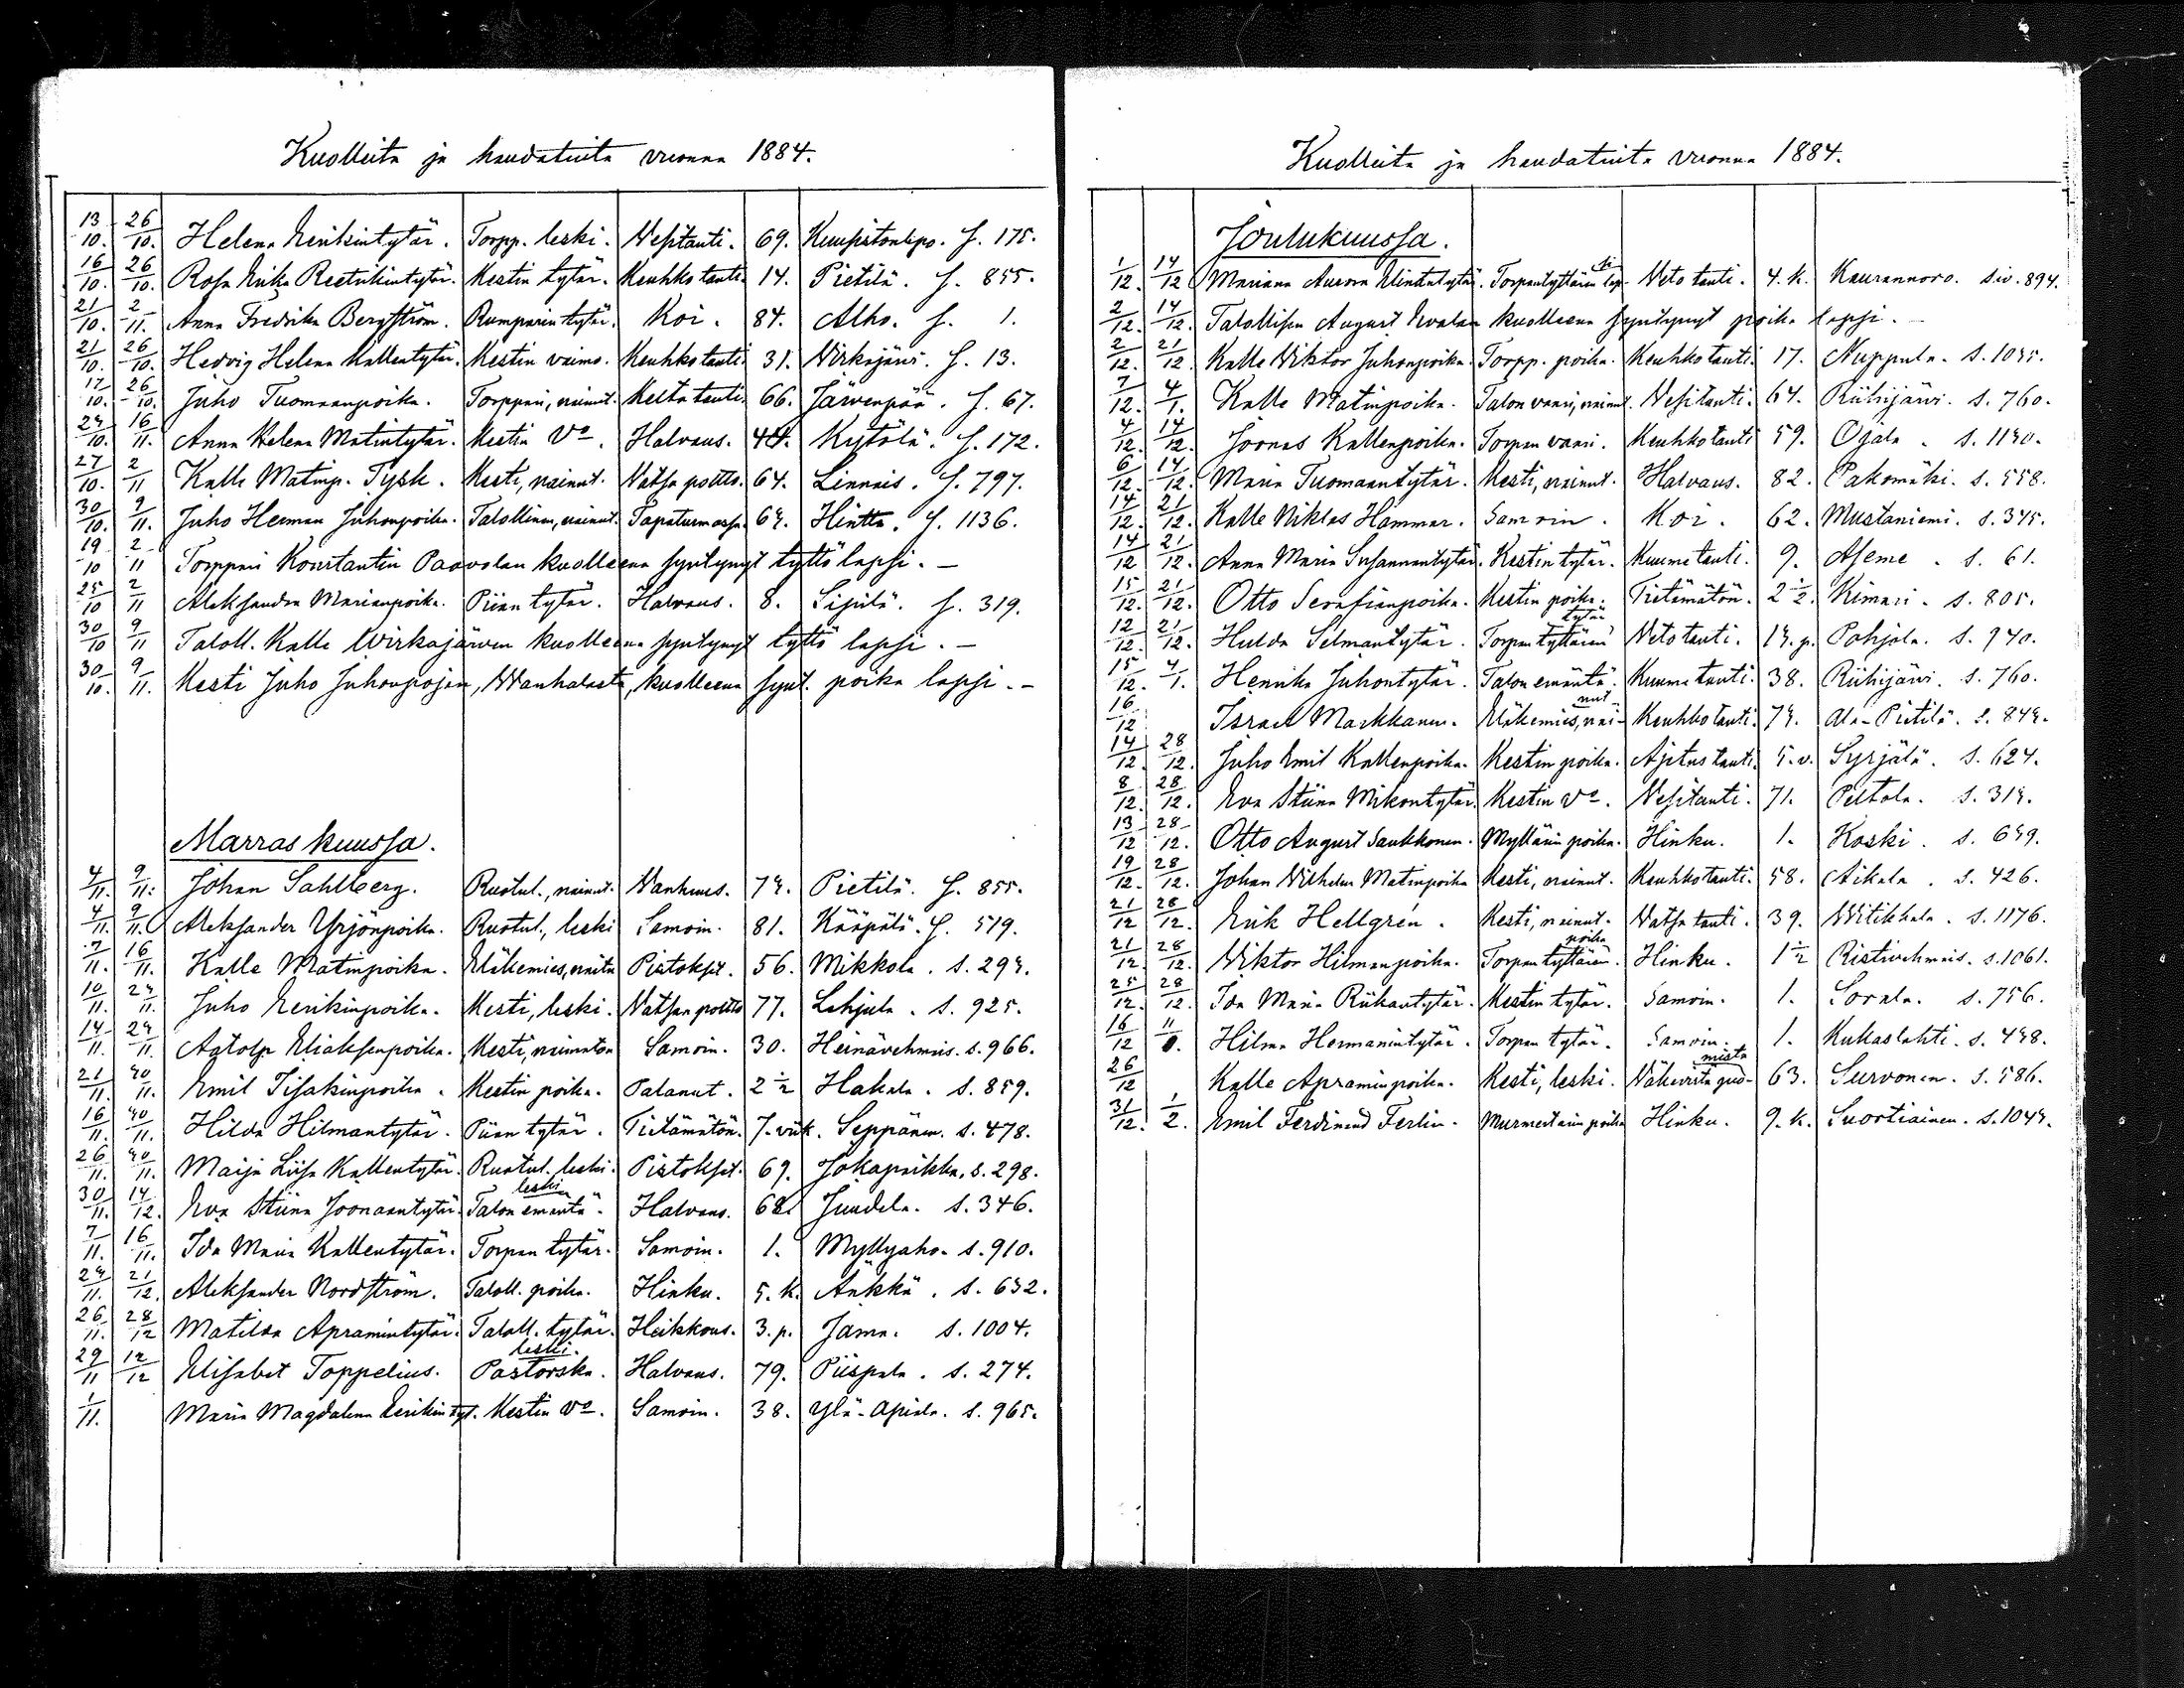 Kuolleita ja haudatuita vuonna 1884.
13/10. 26/10. Helena Herikintytär. Torpp. leski. Vesitauti. 69. f. 175.
16/10. 26/10. Rosa Erika Reetrikintytär. Kestin tytär. Keuhkotauti 14. Pietilä. f. 855.
21/10. 2/11. Anna Fredrika Bergström. Rumparin tytär. Koi. 84. Alho. f. 1.
21/10. 26/10. Hedvig Helena Kallentytär. Kestin vaimo. Keuhkotauti 31. Virkajärvi. f. 13.
17/10. 26/10. Juho Tuomaanpoika. Torppari, nainut. Keltatauti. 66. Järvenpää. f. 67.
24/10. 16/11. Anna Helena Matintytär. Kestin Vo. Halvaus. 44. Kytölä. f. 172.
27/10. 2/11 Kalle Matinp. Tysk. Kesti, nainut. Vatsa poltto. 64. Linnais. f. 797.
30/10. 9/11. Juho Herman Juhonpoika. Talollinen, nainut. Tapaturmassa. Hintta. f. 1136.
19/10 2/11 Torppari Konstantin Paavolan kuolleena syntynyt tyttö lapsi. —
25/10 2/11 Aleksandra Marianpoika. Piian tytär. Halvaus. 8. Sipilä. f. 319.
30/10 9/11 Taloll. Kalle Wirkajärven kuolleena syntynyt tyttö lapsi. —
30/10. 9/11. Kesti Juho Juhonpojan, Wanhalasta, kuolleena synt. poika lapsi. —
Marraskuussa.
4/11. 9/11. Johan Sahlberg. Ruotul., nainut. Vanhuus. Pietilä. f. 855.
4/11. 9/11. Aleksander Yrjönpoika. Ruotul., leski Samoin. 81. Kääpälä. f. 519.
7/11. 16/11. Kalle Matinpoika. Eläkemies, naitu Pistokset. 56. Mikkola. s. 294.
10/11. 24/11. Juho Herikinpoika. Kesti, leski. Vatsan poltto 77. Lahjula. s. 925.
14/11. 24/11. Aatolp Eliaksenpoika. Kesti, naimaton Samoin. 30. Heinävehmis. s. 966.
21/11. 30/11. Emil Iisakinpoika. Kestin poika. Palanut. 2 1/2 Hakala. s. 859.
16/11. 30/11. Hilda Hilmantytär. Piian tytär. Tietämätön. 7. viik. Seppänen. s. 478.
26/11. 30/11. Maija Liisa Kallentytär. Ruotul. leski. Pistokset. 69. Jokapaikka, s. 298.
30/11. 14/12. Eva Stiina Joonaantytär. Talon emäntä leski. Halvaus. 68. Juudela. s. 346.
7/11. 16/11. Ida Maria Kallentytär. Torpan tytär. Samoin. 1. Myllyaho. s. 910.
24/11. 21/12. Aleksander Nordström. Taloll. poika. Hinku. 5. k. Änkkä. s. 632.
26/11. 28/12 Matilda Apramintytär. Taloll. tytär. Heikkous. 3. p. Jama. s. 1004.
29/11 12/12 Elisabet Toppelius. Pastorska leski. Halvaus. 79. Piispala. s. 274.
1/11. Maria Magdalena Herikintyt. Kestin Vo. Samoin. 38. Ylä-Apiala. s. 965.
Kuolleita ja haudatuita vuonna 1884.
Joulukuussa.
1/12. 14/12 Mariana Aurora Eliintytär. Torpantyttären Veto tauti. 4. k. Kaurannoro. siv. 894.
2/12. 14/12. Talollisen August Evalan kuolleena syntynyt poika lapsi. —
2/12. 21/12. Kalle Viktor Juhonpoika. Torpp. poika. Keuhkotauti 17. Nuppula. s. 1035.
7/12. 4/1. Kalle Matinpoika. Talon vaari, nainut. Vesitauti. 64. Riihijärvi. s. 760.
4/12. 14/12. Joonas Kallenpoika. Torpan vaari. Keuhkotauti 59. Ojala. s. 1130.
6/12. 14/12. Maria Tuomaantytär. Kesti, nainut. Halvaus. 82. Pakomäki. s. 558.
14/12. 21/12. Kalle Niklas Hammar. Samoin. Koi. 62. Mustaniemi. s. 345.
14/12 21/12. Anna Maria Susannantytär. Kestin tytär. Kuumetauti. 9. Aseme. s. 61.
15/12. 21/12. Otto Serafianpoika. Kestin poika. Tietämätön. 2 1/2. Kimari. s. 805.
12/12. 21/12. Hulda Selmantytär. Torpan tyttären tytär Veto tauti. 14. p. Pohjola. s. 940.
15/12. 4/1. Henrika Juhontytär. Talon emäntä. Kuumetauti. 38. Riihijärvi. s. 760.
16/12 Israel Markkanen. Eläkemies, nainut Keuhkotauti. 74. Ala-Pietilä. s. 844.
14/12. 28/12. Juho Emil Kallenpoika. Kestin poika. Ajetustauti. 5. v. Syrjälä. s. 624.
8/12. 28/12. Eva Stiina Mikontytär. Kestin Vo. Vesitauti. 71. Peltola. s. 314.
13/12 28/12. Otto August Saukkonen. Myllärin poika. Hinku. 1. Koski. s. 639.
19/12. 28/12. Johan Vilhelm Matinpoika Kesti, nainut. Keuhkotauti. 58. Aikala. s. 426.
21/12 28/12. Erik Hellgrén. Kesti, nainut. Vatsa tauti. 39. Witikkala. s. 1176.
21/12. 28/12. Viktor Hilmanpoika. Torpan tyttären poika Hinku. 1 1/2 Ristivehmais. s. 1061.
25/12. 28/12. Ida Maria Riikantytär. Kestin tytär. Samoin. 1. Sorala. s. 756.
16/12 Hilma Hermanintytär. Torpan tytär. Samoin. 1. Kukaslahti. s. 438.
26/12 Kalle Apraminpoika. Kesti, leski. 63. Survonen. s. 586.
31/12. 1/2. Emil Ferdinand Ferlin. Murmestarin poika Hinku. 9. k. Suortiainen. s. 1044.